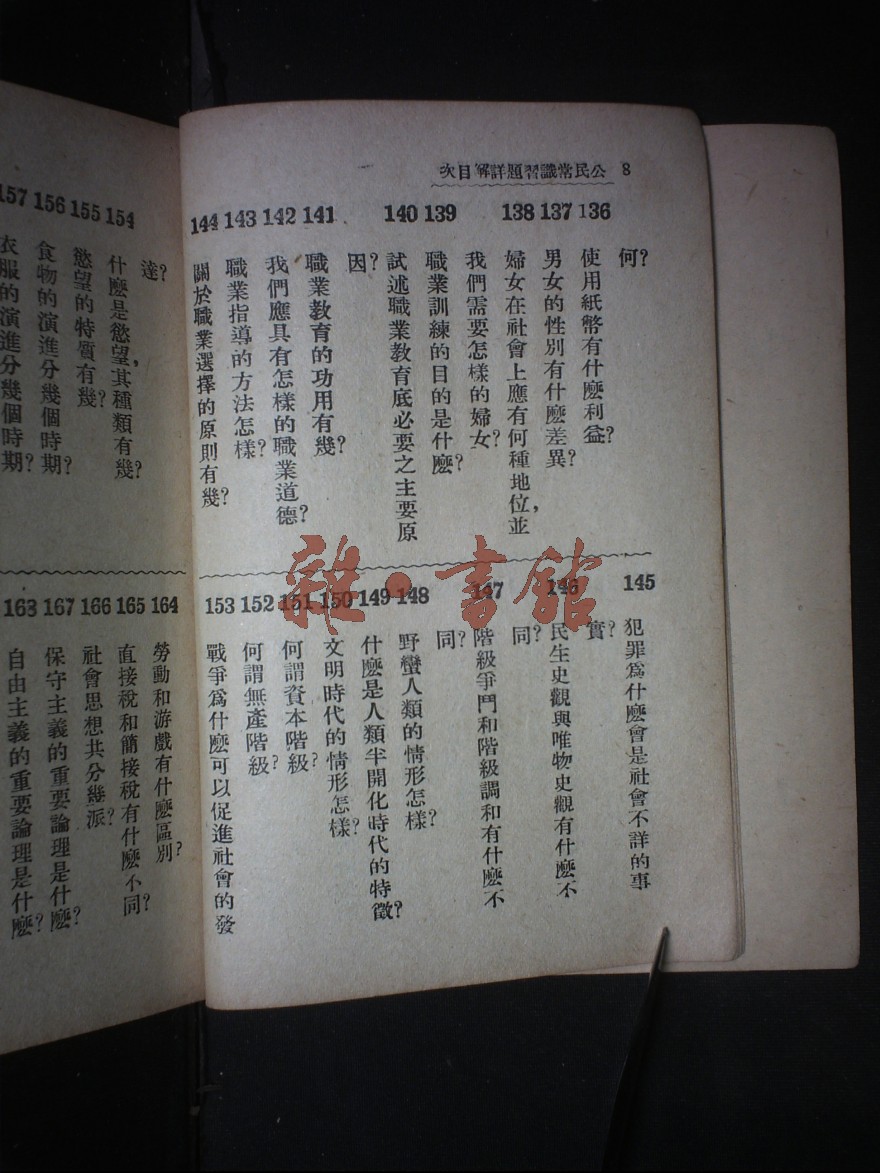 8　公民常識習題詳解目次
何?
136 使用紙幣有什麽利益?
137 男女的性別有什麽差異?
138 婦女在社會上應有何種地位,並
我們需要怎樣的婦女?
139 職業訓練的目的是什麽?
140 試述職業教育底必要之主要原
因?
141 職業教育的功用有幾?
142 我們應具有怎樣的職業道德?
143 職業指導的方法怎樣?
144 關於職業選擇的原則有幾?
145 犯罪爲什麽會是社會不詳的事
實?
146 民生史觀與唯物史觀有什麽不
同?
147 階級爭鬥和階級調和有什麽不
同?
148 野蠻人類的情形怎樣?
149 什麽是人類半開化時代的特徵?
150 文明時代的情形怎樣?
151 何謂資本階級?
152 何謂無產階級?
153 戰爭爲什麽可以促進社會的發
達?
154 什麽是慾望,其種類有幾?
155 慾望的特質有幾?
156 食物的演進分幾個時期?
157 衣服的演進分幾個時期?
164 勞動和游戲有什麽區別?
165 直接稅和簡接稅有什麽不同?
166 社會思想共分幾派?
167 保守主義的重要論理是什麽?
163 自由主義的重要論理是什麽?
雜·書館